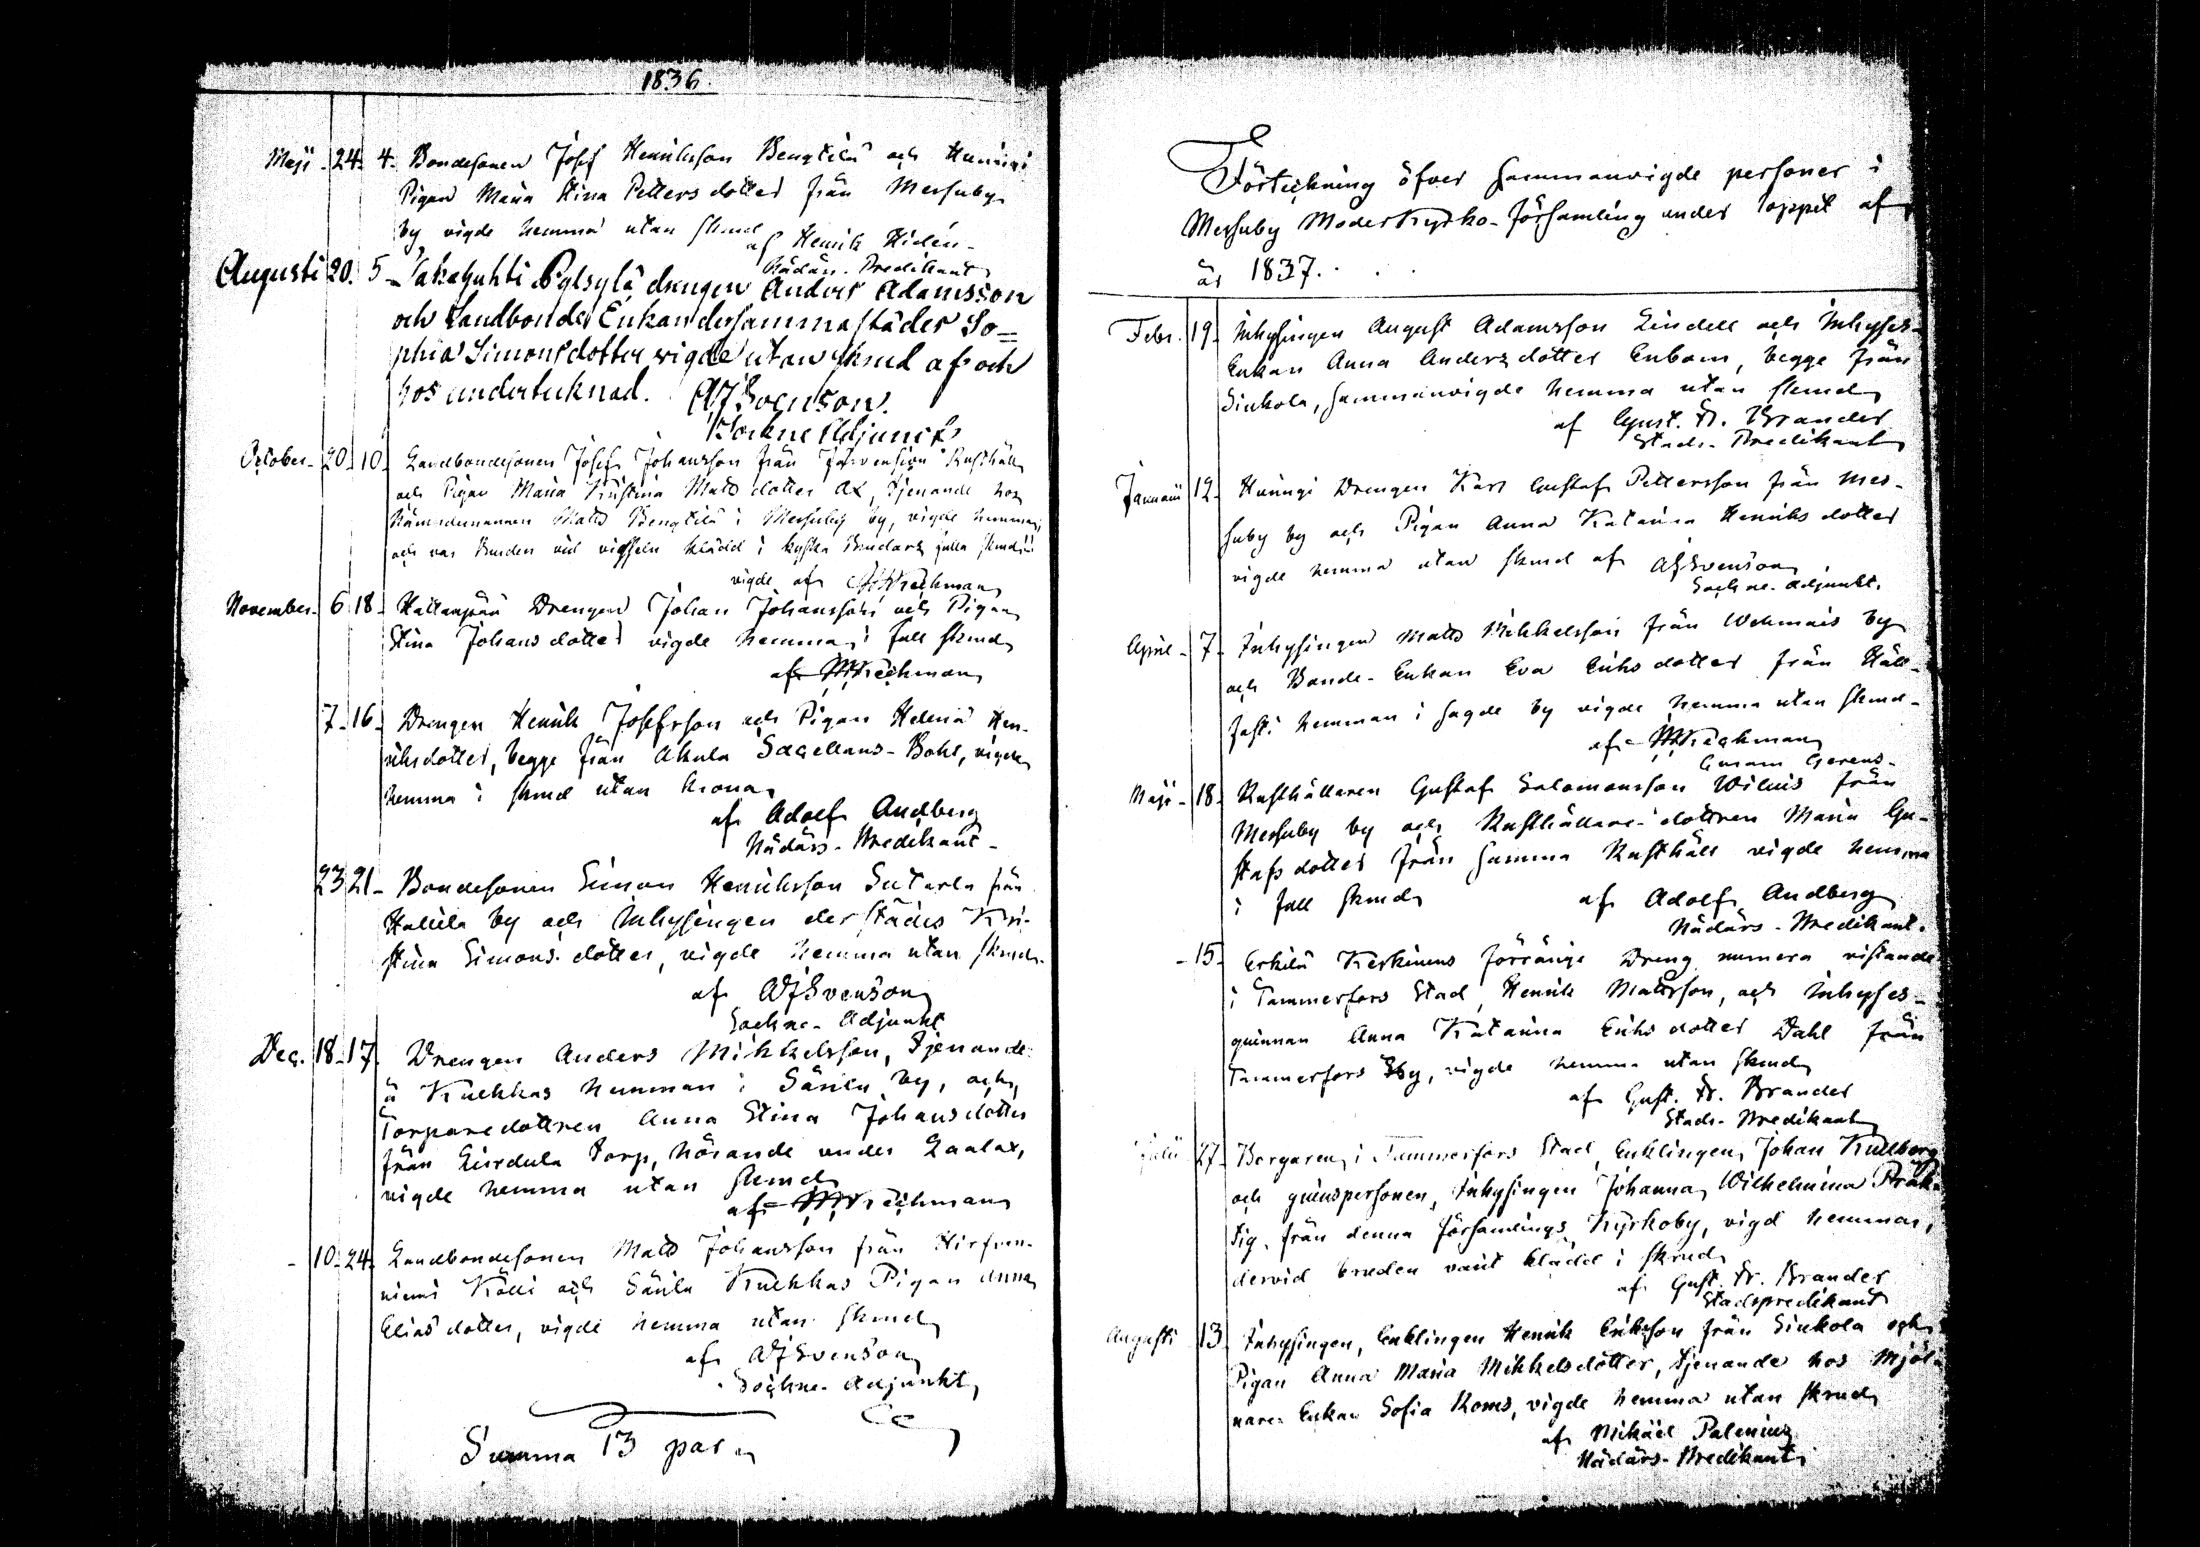 1836.
Maji - 24. 4. Bondesonen Josef Henriksson Bengtilä och Huningi
Pigan Maria Stina Pettersdotter från Messuby
by, vigde hemma utan skrud
af Henrik Hidén -
Nådårs-Predikant
Augusti 20. 5 - Takahuhti Pylsylä drengen Anders Adamsson
och Landbonde Enkan dersammastädes So=
phia Simonsdotter vigde utan skrud af och
hos undertecknad. AJSvenson.
Sockne Adjunct
October - 20. 10. Landbondesonen Josef Johansson från Järvensivu Rusthåll
och Pigan Maria Kristina Matsdotter Ax, tjenande hos
Nämndemannen Matts Bengtilä i Messuby by, vigde hemma,
och var Bruden vid vigseln klädd i kyska Brudars fulla skrud
vigde af Wrechman
November - 6. 18 - Drengen Johan Johansson och Pigan
Stina Johansdotter vigde hemma i full skrud
af Wrechman
7 - 16 - Drengen Henrik Josefsson och Pigan Helena Hen-
riksdotter, begge från Akula Sacellans-Bohl, vigde
hemma i skrud utan krona
af Adolf Andberg
Nådårs-Predikant -
23 21 - Bondesonen Simon Henriksson Sutarla från
Hallila by och Inhysingen derstädes Kri-
stina Simonsdotter, vigde hemma utan skrud
af AJSvenson
Sockne-Adjunkt
Dec. 18 - 17. Drengen Anders Mikkelsson, tjenande
å Kuckkas hemman i Särila by, och
Torparedottren Anna Stina Johansdotter
från torp, hörande under
vigde hemma utan skrud
af Wrechman
- 10 - 24. Landbondesonen Matts Johansson från Hirfven-
niemi Kölli och Särila Kuckkas Pigan Anna
Eliasdotter, vigde hemma utan skrud
af AJSvenson
Sockne-Adjunkt
Summa 13 par
Förteckning öfver sammanvigde personer i
Messuby Moder Kyrko-församling under loppet af
år 1837.
Febr. 19. Inhysingen August Adamsson Lindell och Inhyses-
Enkan Anna Andersdotter Enbom, begge från
Siukola, sammanvigde hemma utan skrud
af Gust. Fr. Brander
Stads-Predikant
Januarii 12. Huningi Drengen Karl Gustaf Pettersson från Mes-
suby by och Pigan Anna Katarina Henriksdotter
vigde hemma utan skrud af AJSvenson
Sockne-Adjunkt.
April - 7. Inhysingen Matts Mikkelsson från Wehmais by
och Bonde-Enkan Eva Eriksdotter från Håll-
fasti hemman i sagde by vigde hemma utan skrud -
af Wrechman
Maji - 18. Rusthållaren Gustaf Salomonsson Wilnis från
Messuby by och Rusthållare-dottren Maria Gu-
stafsdotter från samma Rusthåll vigde hemma
i full skrud af Adolf Andberg
Nådårs-Predikant.
- 15. Erkilä Kerkinens förränige Dreng numera vistande
i Tammerfors Stad, Henrik Mattsson, och Inhyses-
quinnan Anna Katarina Eriksdotter Dahl från
Tammerfors By, vigde hemma utan skrud
af Gust. Fr. Brander
Stads-Predikant
Julii 27. Borgaren i Tammerfors Stad, Enklingen Johan Kullberg
och quinspersonen, Inhysingen Johanna Wilhelmina
från denna församlings Kyrkoby, vigd hemma,
dervid bruden varit klädd i skrud
af Gust. Fr. Brander
Stadspredikant
Augusti 13. Inhysingen, Enklingen Henrik Eriksson från Siukola och
Pigan Anna Maria Mikkelsdotter, tjenande hos Mjöl-
nare-Enkan Sofia Koms, vigde hemma utan skrud
af Mikäel Palenius
Nådårs-Predikant